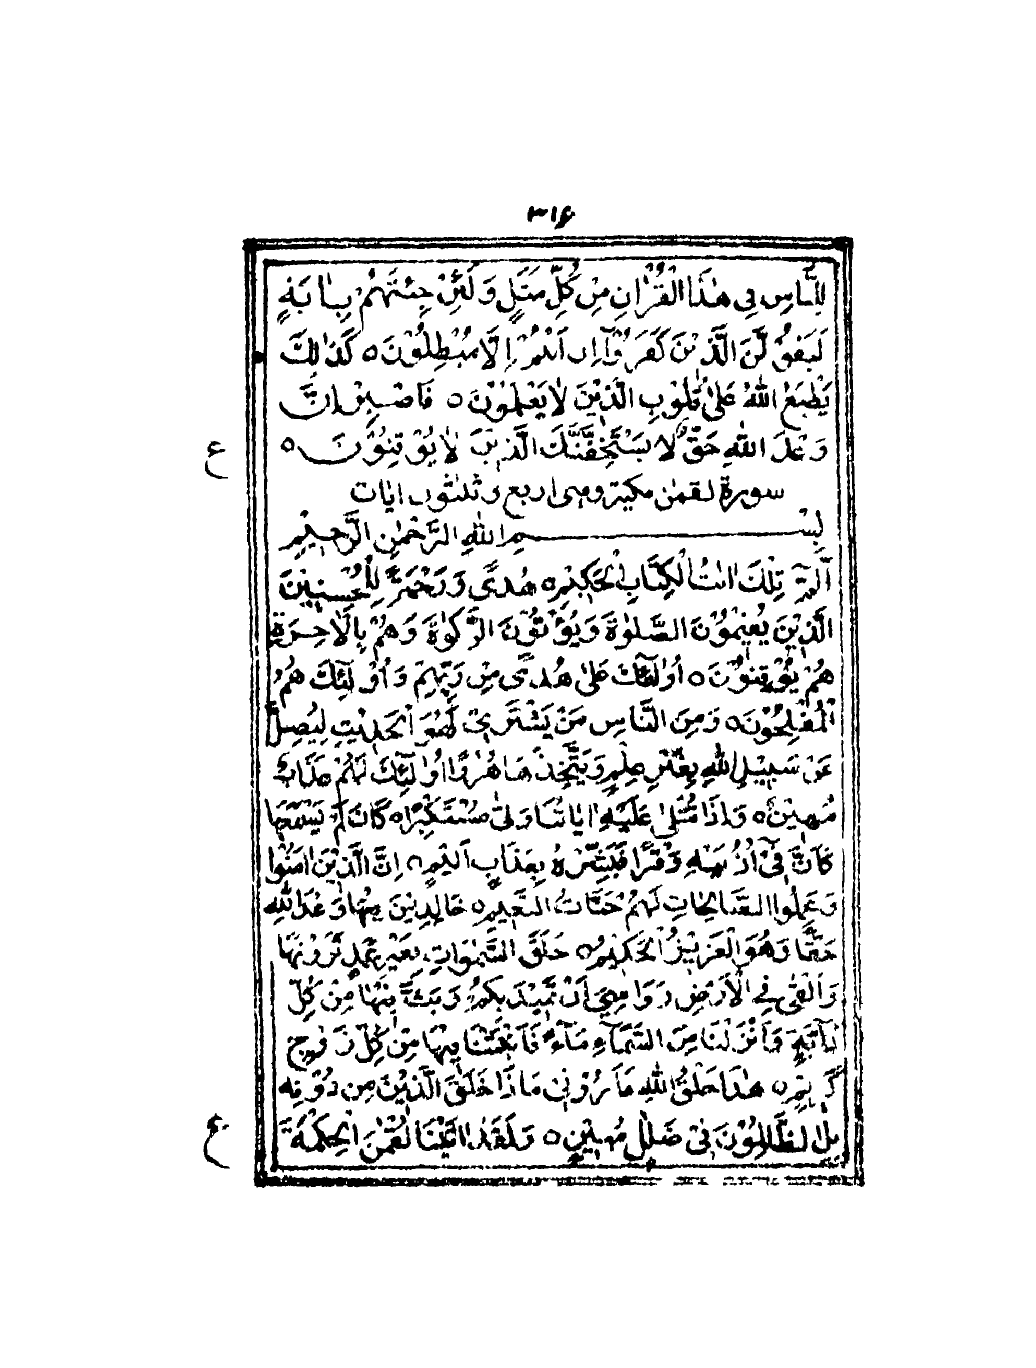 ۳۱۶
لِلنَّاسِ فِي هٰذَا الْقُرْاٰنِ مِنْ كُلِّ مَثَلٍ وَلَئِنْ جِئْتَهُمْ بِاٰيَةٍ
لَيَقُوْلَنَّ الَّذِيْنَ كَفَرُوْٓا اِنْ اَنْتُمْ اِلَّا مُبْطِلُوْنَ ○ كَذٰلِكَ
يَطْبَعُ اللّٰهُ عَلٰى قُلُوْبِ الَّذِيْنَ لَا يَعْلَمُوْنَ ○ فَاصْبِرْ اِنَّ
وَعْدَ اللّٰهِ حَقٌّ وَّلَا يَسْتَخِفَّنَّكَ الَّذِيْنَ لَا يُوْقِنُوْنَ ○
ع
سورة لقمٰن مكية وهي اربع وثلثون ايات
بِسْمِ اللّٰهِ الرَّحْمٰنِ الرَّحِيْمِ
الٓمّٓ تِلْكَ اٰيٰتُ الْكِتَابِ الْحَكِيْمِ ○ هُدًى وَّرَحْمَةً لِّلْمُحْسِنِيْنَ
الَّذِيْنَ يُقِيْمُوْنَ الصَّلٰوةَ وَيُؤْتُوْنَ الزَّكٰوةَ وَهُمْ بِالْاٰخِرَةِ
هُمْ يُوْقِنُوْنَ ○ اُولٰٓئِكَ عَلٰى هُدًى مِّنْ رَّبِّهِمْ وَاُوْلٰٓئِكَ هُمُ
الْمُفْلِحُوْنَ ○ وَمِنَ النَّاسِ مَنْ يَشْتَرِيْ لَهْوَ الْحَدِيْثِ لِيُضِلَّ
عَنْ سَبِيْلِ اللّٰهِ بِغَيْرِ عِلْمٍ وَّيَتَّخِذَهَا هُزُوًا اُولٰٓئِكَ لَهُمْ عَذَابٌ
مُّهِيْنٌ ○ وَاِذَا تُتْلٰى عَلَيْهِ اٰيَاتُنَا وَلّٰى مُسْتَكْبِرًا كَاَنْ لَّمْ يَسْمَعْهَا
كَاَنَّ فِيْٓ اُذُنَيْهِ وَقْرًا فَبَشِّرْهُ بِعَذَابٍ اَلِيْمٍ ○ اِنَّ الَّذِيْنَ اٰمَنُوْا
وَعَمِلُوا الصَّالِحَاتِ لَهُمْ جَنَّاتُ النَّعِيْمِ ○ خَالِدِيْنَ فِيْهَا وَعْدَ اللّٰهِ
حَقًّا وَهُوَ الْعَزِيْزُ الْحَكِيْمُ ○ خَلَقَ السَّمٰوَاتِ بِغَيْرِ عَمَدٍ تَرَوْنَهَا
وَاَلْقٰى فِي الْاَرْضِ رَوَاسِيَ اَنْ تَمِيْدَ بِكُمْ وَبَثَّ فِيْهَا مِنْ كُلِّ
دَآبَّةٍ وَاَنْزَلْنَا مِنَ السَّمَآءِ مَآءً فَاَنْبَتْنَا فِيْهَا مِنْ كُلِّ زَوْجٍ
كَرِيْمٍ ○ هٰذَا خَلْقُ اللّٰهِ فَاَرُوْنِيْ مَاذَا خَلَقَ الَّذِيْنَ مِنْ دُوْنِهٖ
بَلِ الظّٰلِمُوْنَ فِيْ ضَلٰلٍ مُّبِيْنٍ ○ وَلَقَدْ اٰتَيْنَا لُقْمٰنَ الْحِكْمَةَ
ع